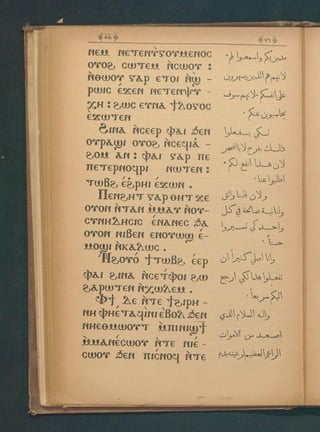 ⲛⲉⲙ ⲛⲉⲧⲉⲛϩⲩⲅⲟⲩⲙⲉⲛⲟⲥ
ⲟⲩⲟϩ ⲥⲱⲧⲉⲙ ⲛ̀ⲥⲱⲟⲩ :
ⲛ̀ⲑⲱⲟⲩ ⲅⲁⲣ ⲉⲧⲟⲓ ⲛ̀ϣ-
ⲣⲱⲓⲥ ⲉ̀ϫⲉⲛ ⲛⲉⲧⲉⲛⲯⲩ-
ⲭⲏ : ϩⲱⲥ ⲉⲩⲛⲁ ϯⲗⲟⲅⲟⲥ
ⲉ̀ϫⲱⲧⲉⲛ
Ϩⲓⲛⲁ ⲛ̀ⲥⲉⲉⲣ ⲫⲁⲓ ϧⲉⲛ
ⲟⲩⲣⲁϣⲓ ⲟⲩⲟϩ ⲛ̀ⲥⲉϥⲓⲁ̀-
ϩⲟⲙ ⲁⲛ : ⲫⲁⲓ ⲅⲁⲣ ⲡⲉ
ⲡⲉⲧⲉⲣⲛⲟϥⲣⲓ ⲛⲱⲧⲉⲛ :
ⲧⲱⲃϩ ⲉ̀ϩ̀ⲣⲏⲓ ⲉϫⲱⲛ .
Ⲡⲉⲛϩⲏⲧ ⲅⲁⲣ ⲑⲏⲧ ϫⲉ
ⲟⲩⲟⲛ ⲛ̀ⲧⲁⲛ ⲙ̀ⲙⲁⲩ ⲛ̀ⲟⲩ-
ⲥⲩⲛⲏⲇⲉⲥⲓⲥ ⲉ̀ⲛⲁⲛⲉⲥ ϧⲁ
ⲟⲩⲟⲛ ⲛⲓⲃⲉⲛ ⲉⲛⲟⲩⲱϣ ⲉ̀-
ⲙⲟϣⲓ ⲛ̀ⲕⲁⲗⲱⲥ .
Ⲛ̀ϩⲟⲩⲟ̀ ϯⲧⲱⲃϩ ⲉ̀ⲉⲣ
ⲫⲁⲓ ϩⲓⲛⲁ ⲛ̀ⲥⲉⲧⲫⲟⲓ ϩⲱ
ϩⲁⲣⲱⲧⲉⲛ ⲛ̀ⲭⲱⲗⲉⲙ .
Ⲫϯ ⲇⲉ ⲛ̀ⲧⲉ ϯϩⲓⲣⲏ-
ⲛⲏ ⲫⲏⲉⲧⲁϥⲓ̀ⲛⲓ ⲉ̀ⲃⲟⲗ ϧⲉⲛ
ⲛⲏⲉⲑⲙⲱⲟⲩⲧ ⲙ̀ⲡⲓⲛⲓϣϯ
ⲙ̀ⲙⲁⲛⲉ̀ⲥⲱⲟⲩ ⲛ̀ⲧⲉ ⲛⲓⲉ̀-
ⲥⲱⲟⲩ ϧⲉⲛ ⲡⲓⲥⲛⲟϥ ⲛ̀ⲧⲉ
مدبريكم واسمعوا لهم ·
لانهم هم الذين يسهرون
على انفسكم · لانهم سوف
يحاسبون عنكم ·
لكي يفعلوا
ذلك بفرح لا بالتضجر
لان هذا انفع لكم ·
اطلبوا عنا ·
ولان قلبنا واثق
ولنا نية صالحة في كل
واحد كي تسيروا
حسناً ·
وانا اطلب كثيراً ان
تفعلوا هذا لكي ارجع
اليكم سريعاً ·
واله السلام الذي
اصعد من الاموات
الراعي العظيم لرعيته بدم